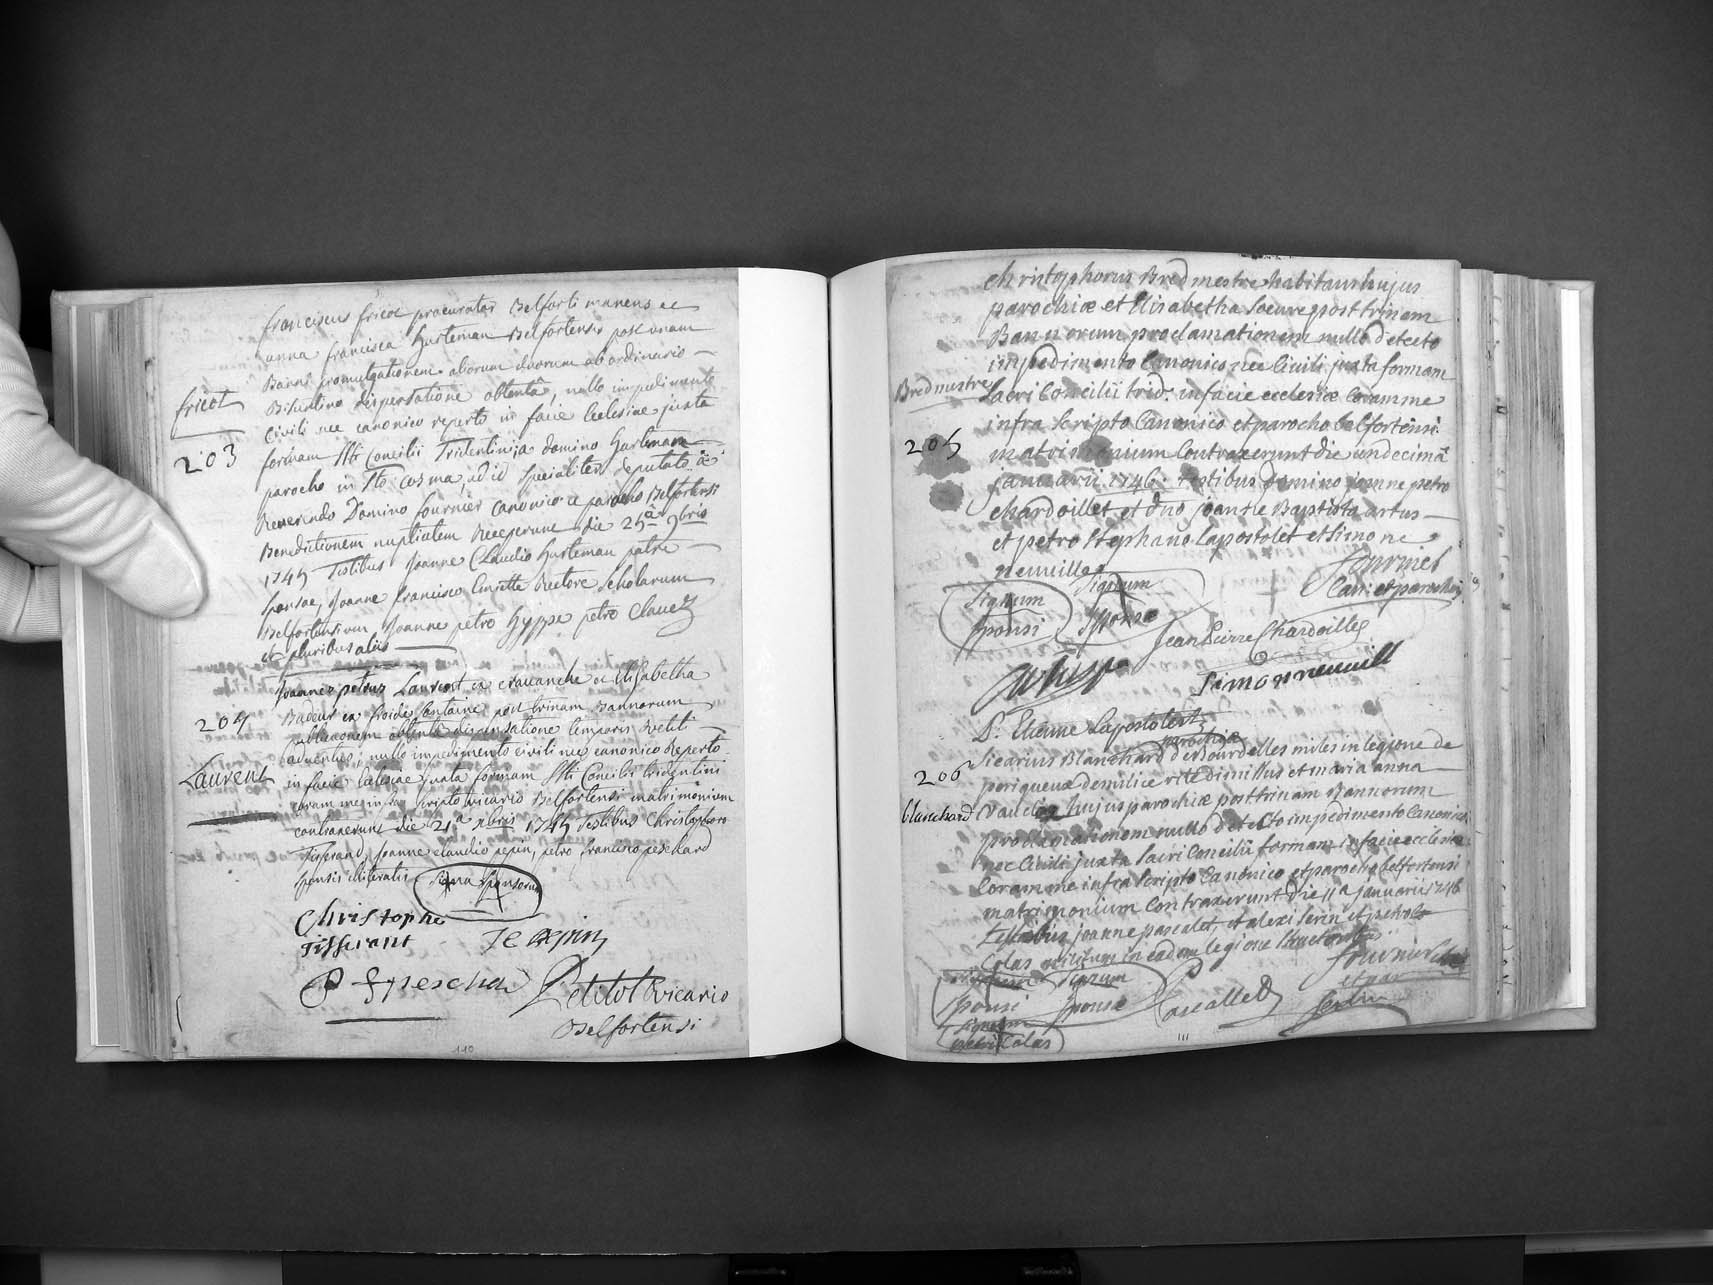 franciscus fricot procurator Belforti manens et
anna francisca hurteman Belfortensis post unam
Banni promulgationem aliorum duorum ab ordinario
Bisuntino dispensatione obtentâ, nullo impedimento
fricot
Civili nec canonico reperto in facie Ecclesiae juxta
203
formam Sti Concilii Tridentini; a domino hurteman
parocho in Sto cosma, ad id specialiter deputato à
Reverendo Domino fournier canonico ac parocho Belfortensi
Benedictionem nuptialem Receperunt die 25â 9bris
1745 Testibus Joanne Claudio hurteman patre
sponsae, Joanne francisco Rectore scholarum
Belfortensium Joanne petro hyppe petro Clavez
et pluribus aliis
Joannes petrus Laurent ex cravanche et Elisabetha
Badour ex froide fontaine post trinam Bannorum
204
publicaonem obtentâ dispensatione temporis vetiti
adventûs, nullo impedimento civili nec canonico Reperto
Laurent
in facie Ecclesiae juxta formam Sti Concilii tridentini
coram me infra scripto vicario Belfortensi matrimonium
contraxerunt die 21â xbris 1745 Testibus Christophoro
Tisserand, Joanne claudio pepin, petro francisco peschard
sponsis illiteratis signa sponsorum
Christophe
Tisserant J C pepin
P f peschard Petitot vicario
Belfortensi
110
christophorus Bredmestre habitans hujus
parochiae et Elisabetha Soeure post trinam
Bannorum proclamationem nullo detecto
impedimento Canonico nec Civili juxta formam
Bredmestre
Sacri Concilii trid. in facie ecclesiae Coram me
infra scripto Canonico et parocho belfortensi
205
matrimonium Contraxerunt die undecimâ
januarii 1746. testibus domino joanne petro
chardoillet et dno joanne Baptista artus
et petro stephano Lapostolet et simone
neuuille
fournier
Can. et parochus
Signum sponsi
Signum sponsae
Jean Pierre Chardoillet
Simon neuuill
P. Etienne Lapostolest
parochiae
Sicarius Blanchard de Bourdelles miles in legione de
206
perigueux demilice rite dimissus et maria anna
Blanchard
hujus parochiae post trinam Bannorum
proclamationem nullo detecto impedimento Canonico
nec Civili juxta sacri Concilii formam in facie ecclesiae
Coram me infra scripto Canonico et parocho belfortensi
matrimonium Contraxerunt die 11â januarii 1746
testibus joanne pascalet, et alexi serin et petro
Colas militum in eadem legione
fournier Can.
et par
Signum sponsi
Signum sponsae
Pascallet
serin
Signum
petri Colas
111